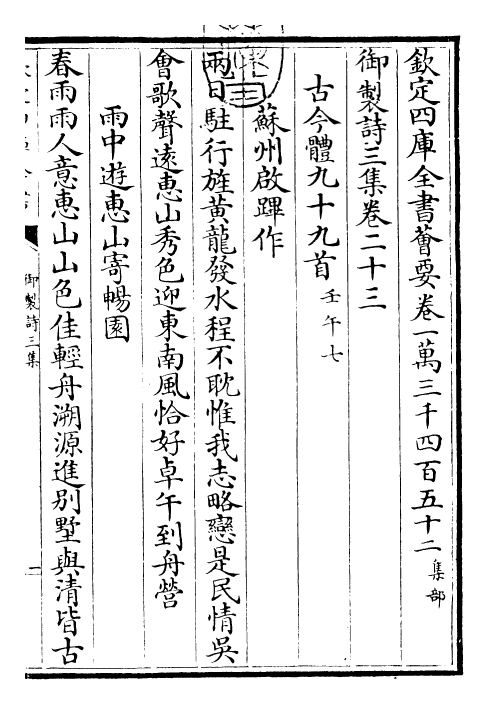 欽定四庫全書薈要卷一萬三千四百五十二集部
御製詩三集卷二十三
古今體九十九首壬午七
蘇州啟蹕作
兩日駐行旌黃龍發水程不耽惟我志略戀是民情吳
會歌聲遠惠山秀色迎東南風恰好卓午到舟營
雨中遊惠山寄暢園
春雨雨人意惠山山色佳輕舟溯源進別墅與清皆古
御製詩三集
一